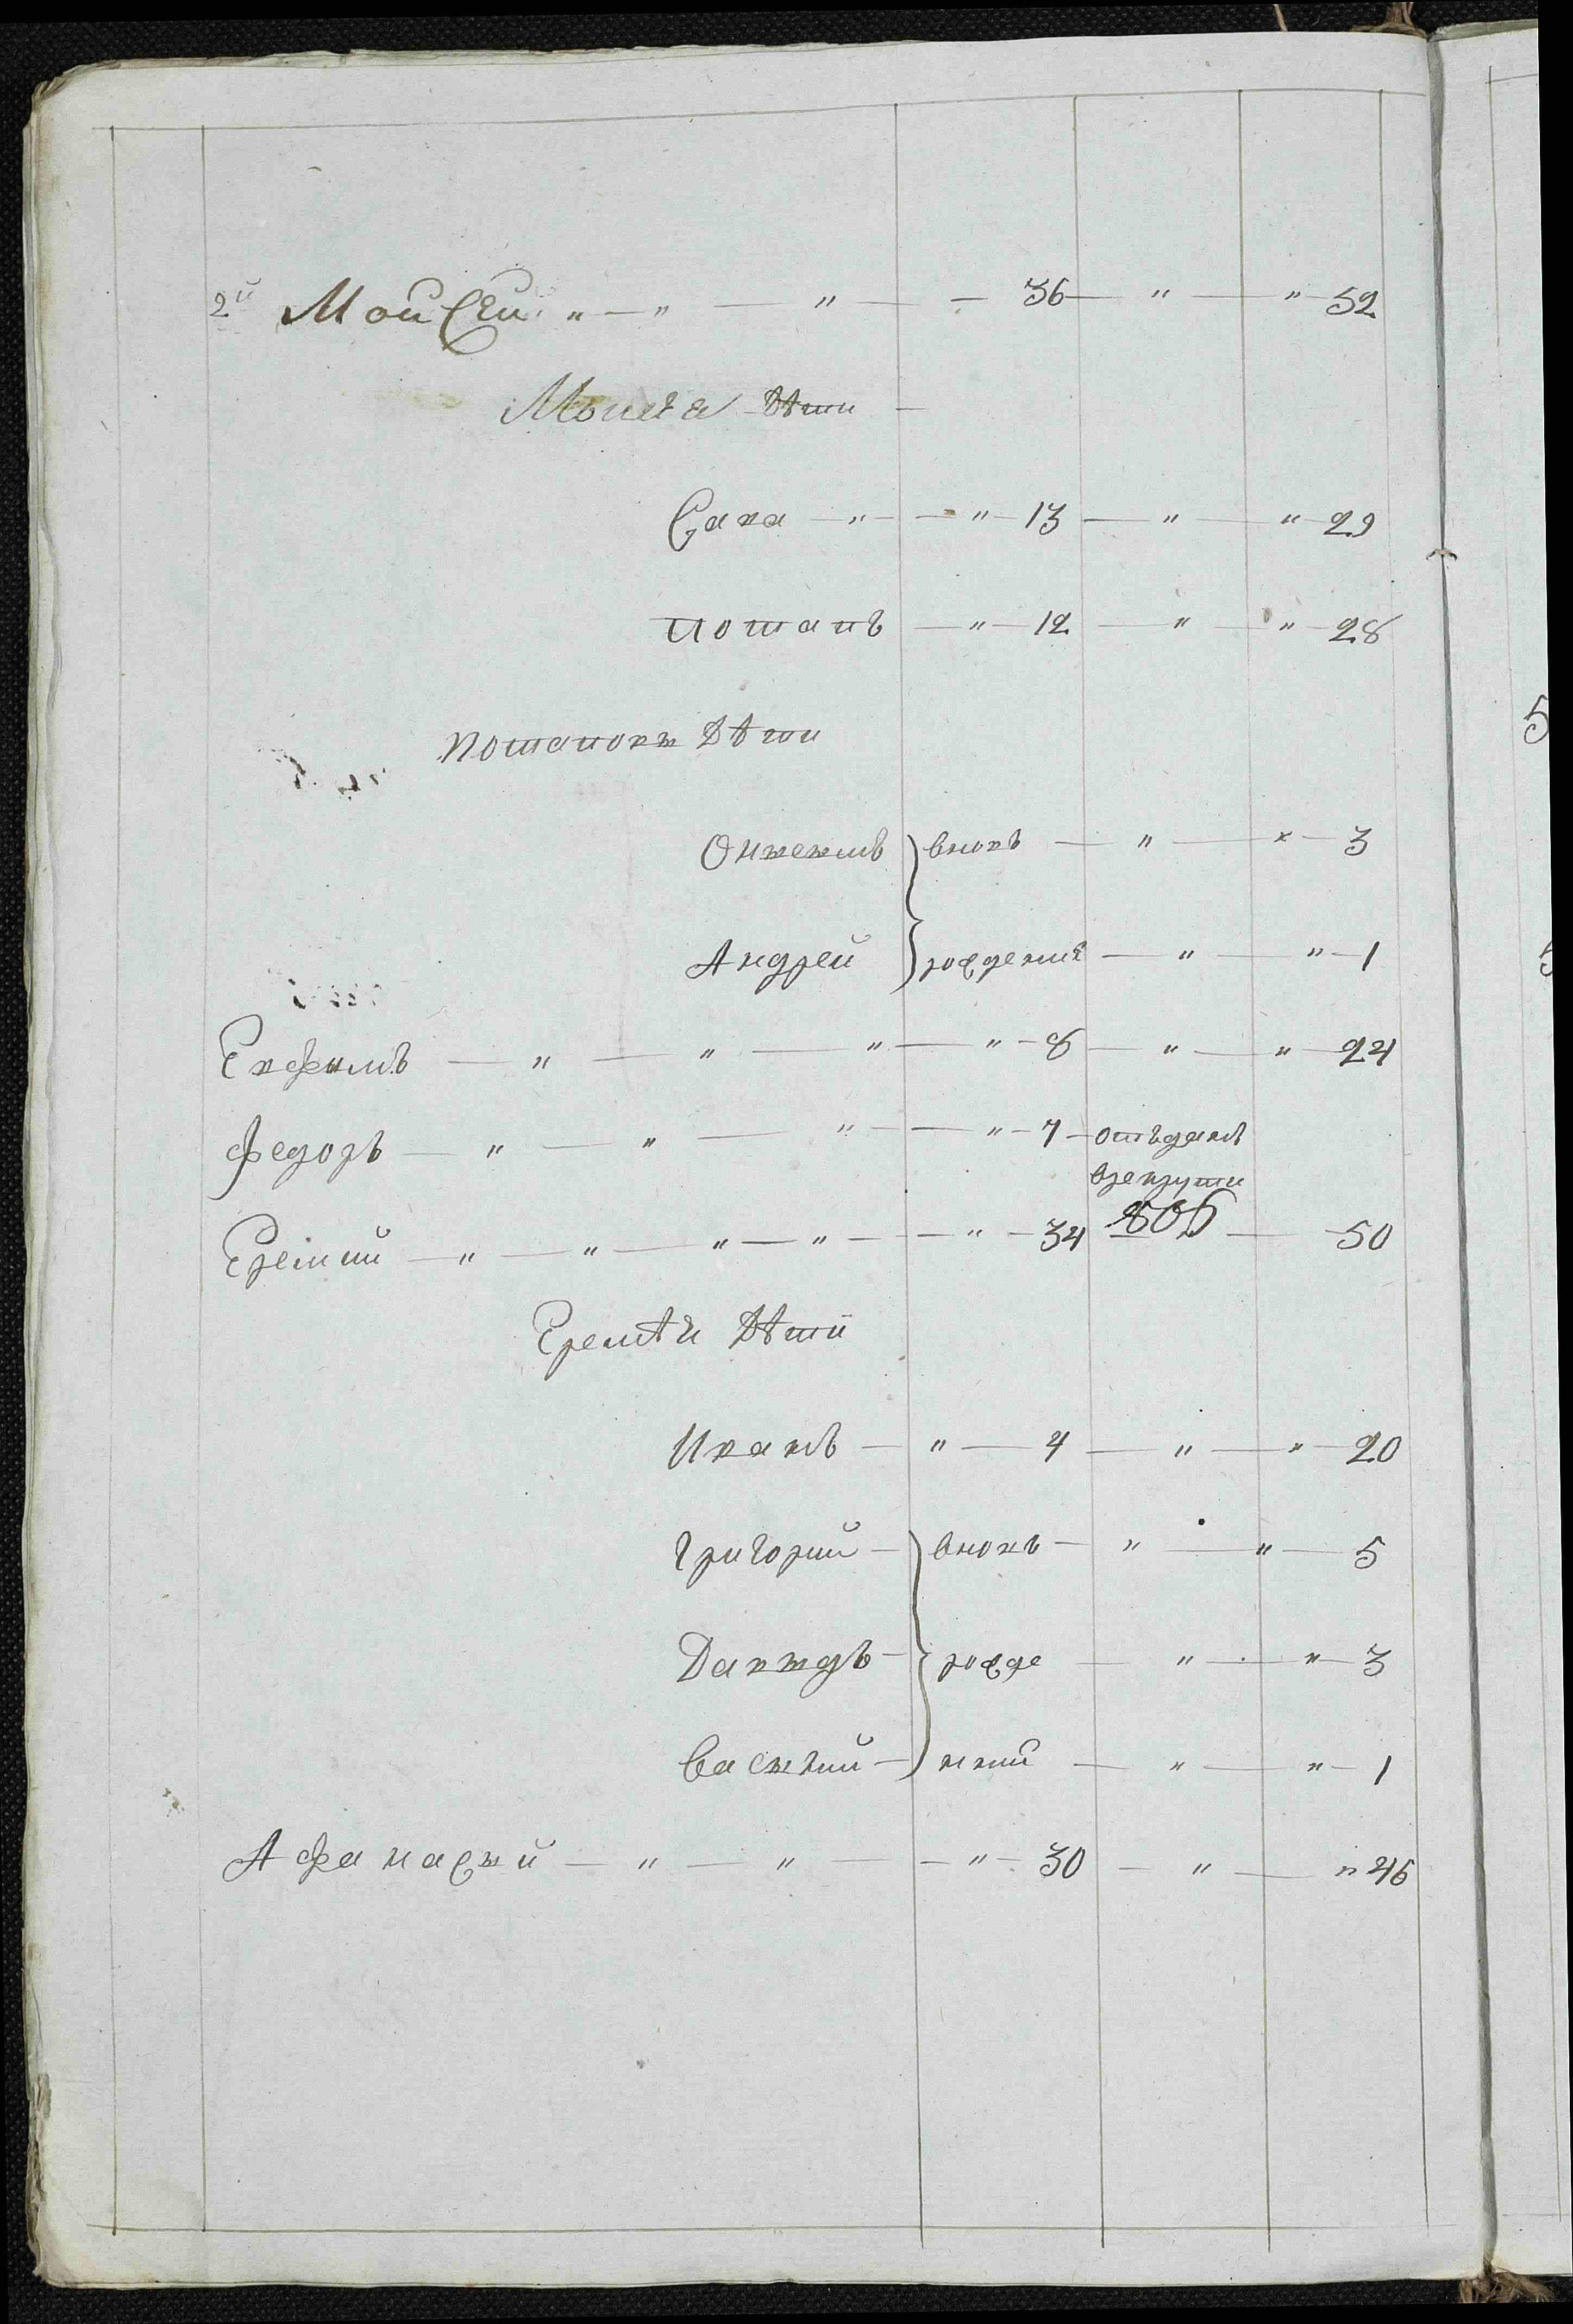 2й Моисеи " — " — " — 36 — " — " 52
Моисея дѣти —
Сава — " — " 13 — " — " 29
Потапъ — " — 12 — " — " 28
Потаповы дѣти
вновь — " — " 3
Андрей рождении — " — " 1
Ефимъ — " — " — " — " 8 — " — " 24
Федоръ — " — " — " — " 7 отъданъ
врекруты
Еремий — " — " — " — " — " 34 805 — 50
Еремѣя дѣти
Иванъ — " — 4 — " — " 20
Григорий — вновь — " — " 5
Давыдъ — рожде — " — " 3
Василий — нный — " — " 1
Афанасий — " — " — " 30 — " — " 46